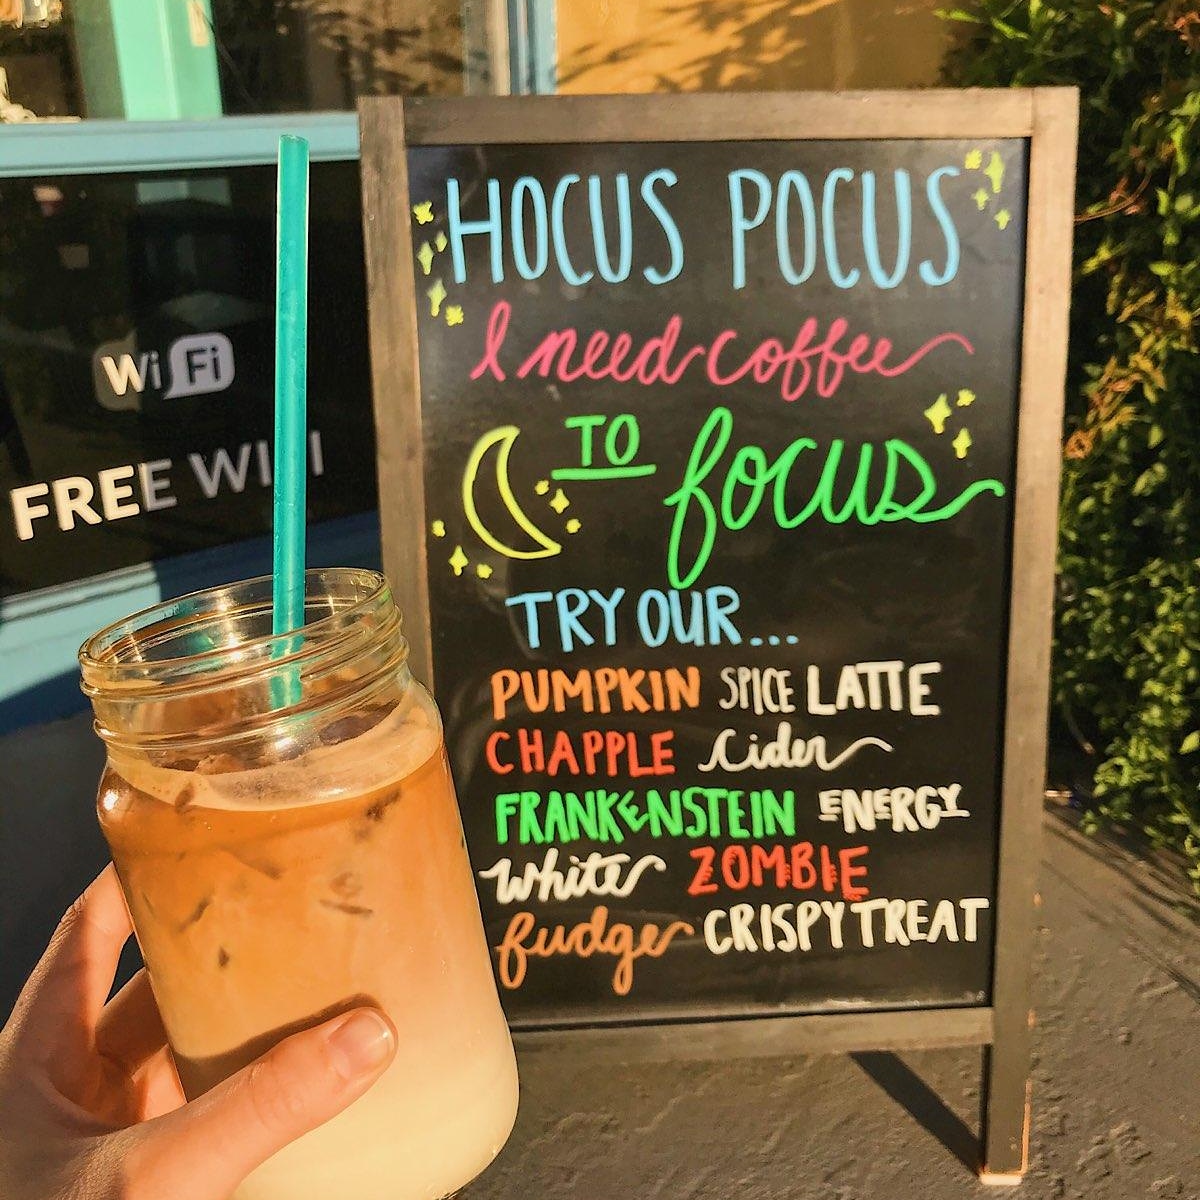 WiFi
FREE WIFI
HOCUS POCUS
I need coffee
TO focus
TRY OUR...
PUMPKIN SPICE LATTE
CHAPPLE Cider
FRANKENSTEIN ENERGY
White ZOMBIE
fudge CRISPY TREAT